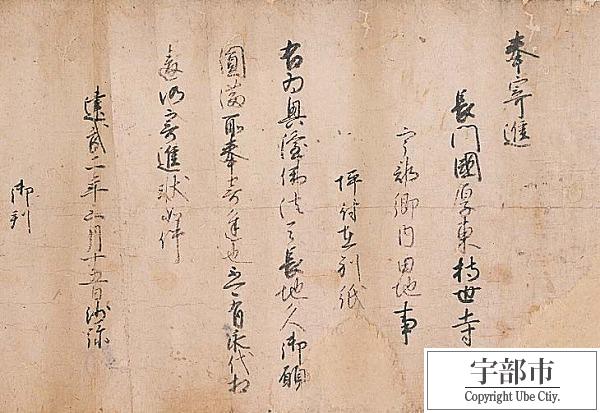 奉寄進
長門國厚東持世寺
宇部郷内田地事
坪付在別紙
右為興隆佛法天長地久御願
圓滿所奉寄進也
寄進状如件
建武二年三月十五日沙弥
御判
宇部市
Copyright Ube Ctiy.